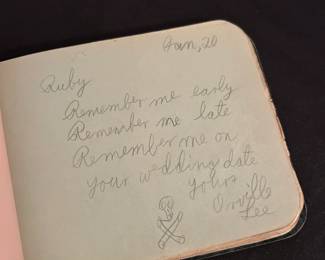 Jan, 20
Ruby
Remember me early
Remember me late
Remember me on
your wedding date
yours
Orville
Lee